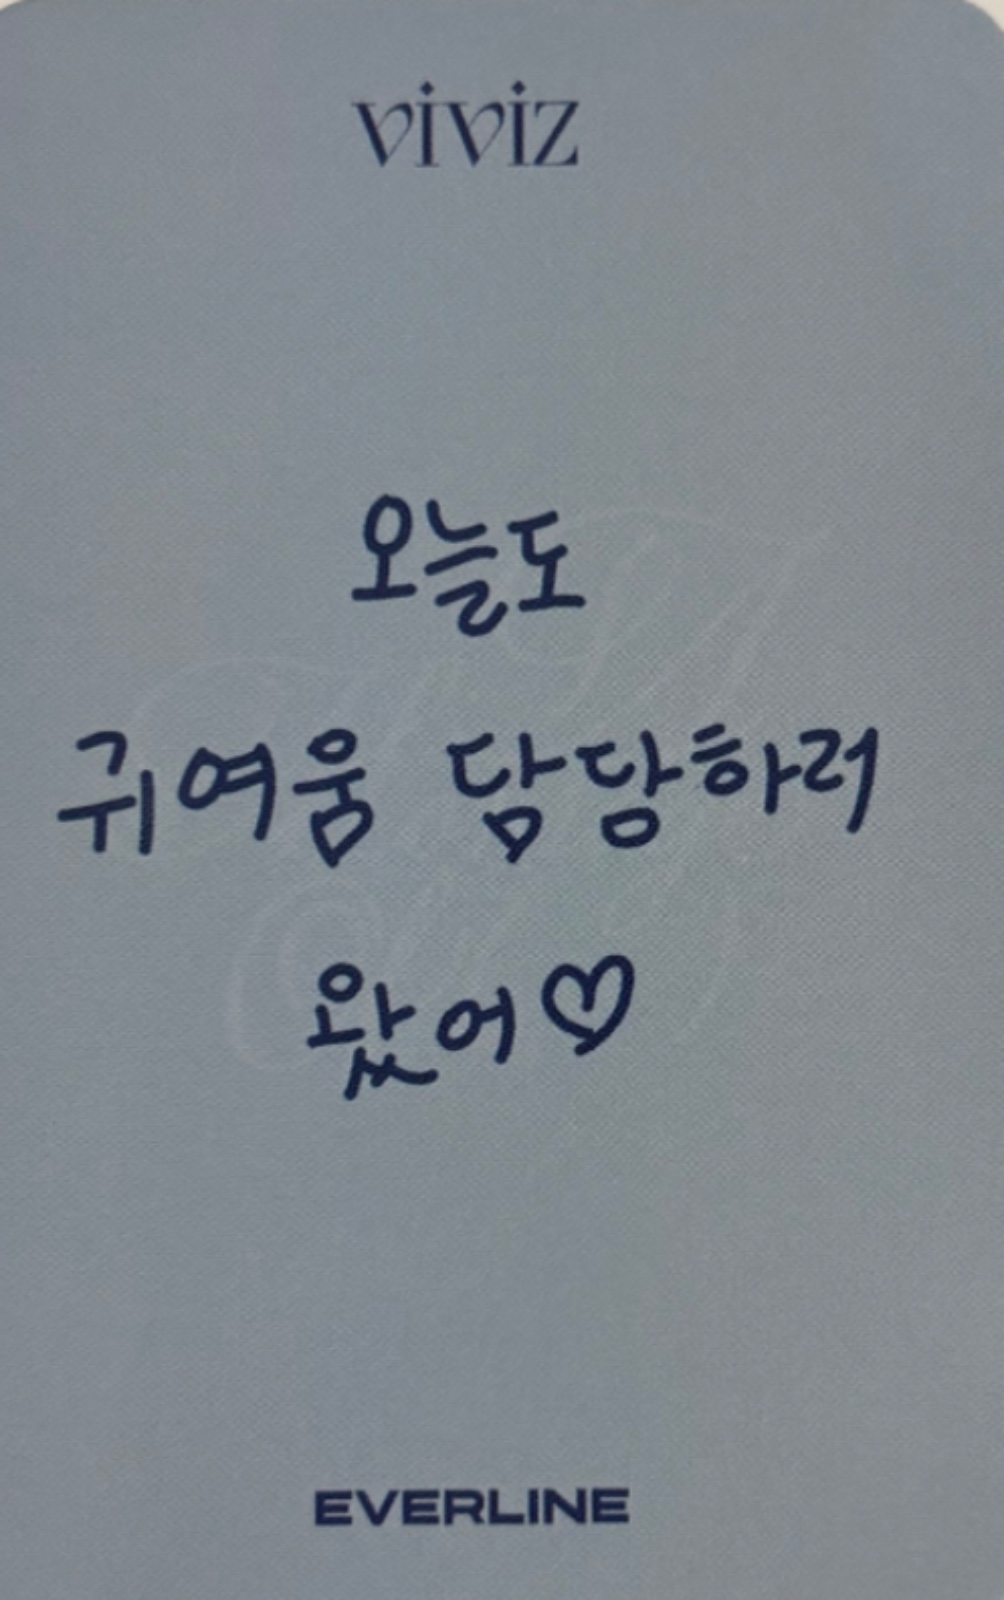 viviz
오늘도
귀여움 담당하러
왔어♡
EVERLINE